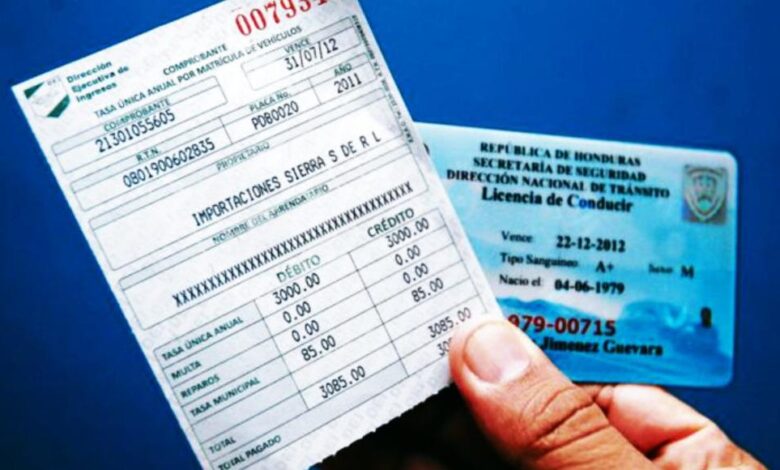 007934
Dirección
Ejecutiva de
Ingresos
COMPROBANTE
TASA ÚNICA ANUAL POR MATRÍCULA DE VEHÍCULOS
VENCE
31/07/12
COMPROBANTE
21301055605
PLACA No.
PDB0020
AÑO
2011
R.T.N.
0801900602835
PROPIETARIO
IMPORTACIONES SIERRA S DE R L
NOMBRE DEL ARRENDATARIO
XXXXXXXXXXXXXXXXXXXXXXXXXXXXXXXXXXX
DÉBITO CRÉDITO
TASA ÚNICA ANUAL 3000.00 3000.00
MULTA 0.00 0.00
REPAROS 0.00 0.00
TASA MUNICIPAL 85.00 85.00
TOTAL 3085.00 3085.00
TOTAL PAGADO
REPÚBLICA DE HONDURAS
SECRETARÍA DE SEGURIDAD
DIRECCIÓN NACIONAL DE TRÁNSITO
Licencia de Conducir
Vence 22-12-2012
Tipo Sanguineo A+ Sexo M
Nacio el 04-06-1979
979-00715
Jimenez Guevara